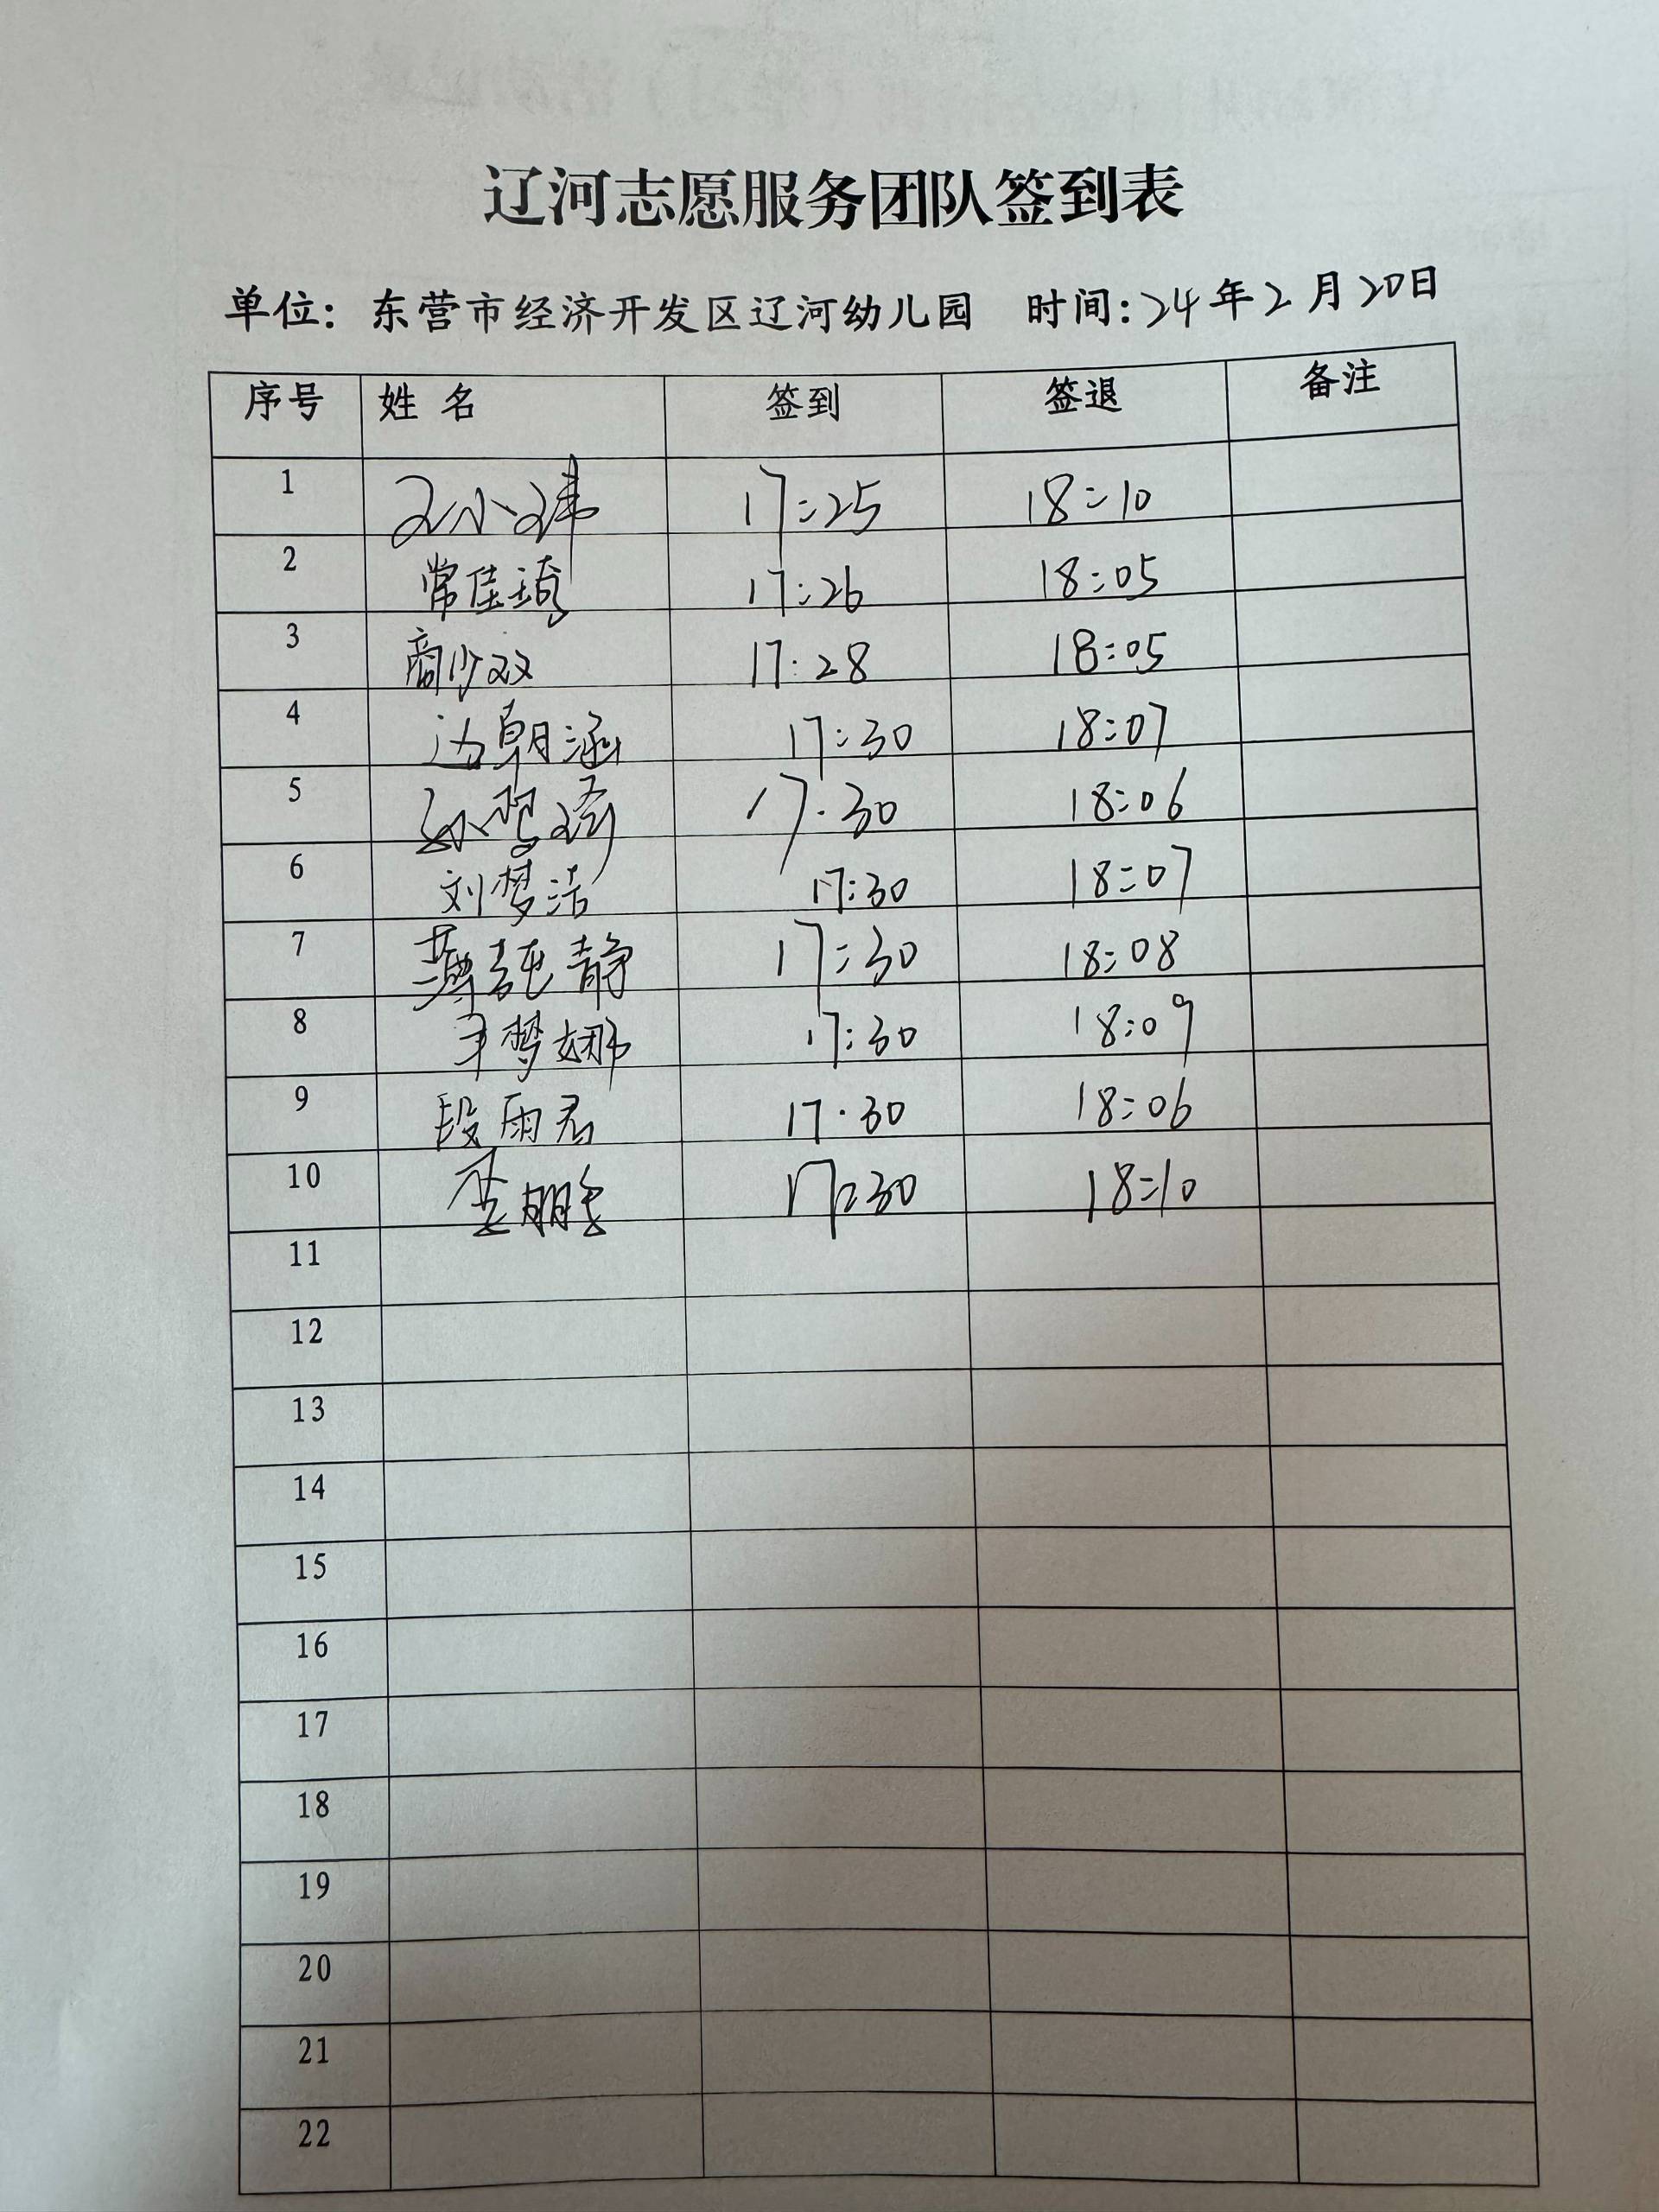 辽河志愿服务团队签到表
单位: 东营市经济开发区辽河幼儿园 时间: 24年2月20日
序号 姓名 签到 签退 备注
1 17:25 18:10
2 常佳琦 17:26 18:05
3 商少双 17:28 18:05
4 边朝涵 17:30 18:07
5 17·30 18:06
6 刘梦洁 17:30 18:07
7 静 17:30 18:08
8 梦娜 17:30 18:09
9 段雨君 17·30 18:06
10 17:30 18:10
11
12
13
14
15
16
17
18
19
20
21
22